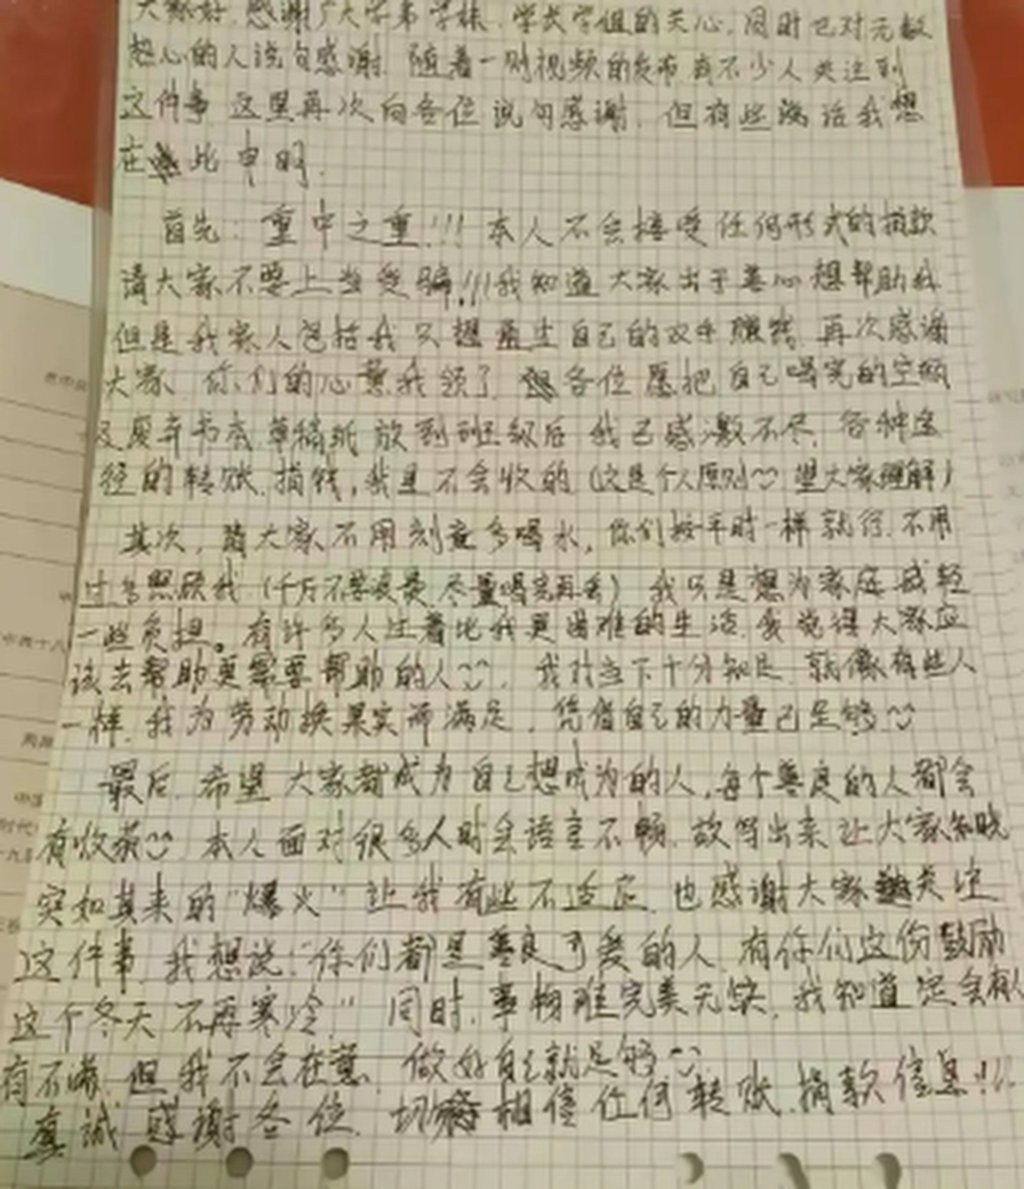 大家好,感谢广大学弟学妹、学长学姐的关心,同时也对无数
热心的人说句感谢.随着一则视频的发布有不少人关注到
这件事.这里再次向各位说句感谢.但有些话我想
在此申明.
首先:重中之重!!!本人不会接受任何形式的捐款
请大家不要上当受骗!!!我知道大家出于善心想帮助我
但是我家人包括我只想通过自己的双手赚钱.再次感谢
大家、你们的心意我领了.各位愿把自己喝完的空瓶
及废弃书本.草稿纸放到班级后我已感激不尽.各种途
径的转账.捐钱,我是不会收的(这是个人原则 望大家理解)
其次,请大家不用刻意多喝水,你们按平时一样就行.不用
过多照顾我(千万不要浪费 尽量喝完再丢)我只是想为家庭减轻
一些负担。有许多人过着比我更困难的生活.我觉得大家应
该去帮助更需要帮助的人 .我对当下十分知足.就像有些人
一样.我为劳动换果实而满足.凭借自己的力量已足够
最后.希望大家都成为自己想成为的人,每个善良的人都会
有收获 .本人面对很多人时会语言不畅.故写出来让大家知晓
突如其来的“爆火”让我有些不适应.也感谢大家关注
这件事.我想说:“你们都是善良可爱的人.有你们这份鼓励
这个冬天不再寒冷.”同时.事物难完美无缺.我知道定会有人
有不满.但我不会在意.做好自己就足够
真诚感谢各位.切勿相信任何转账.捐款信息!!!